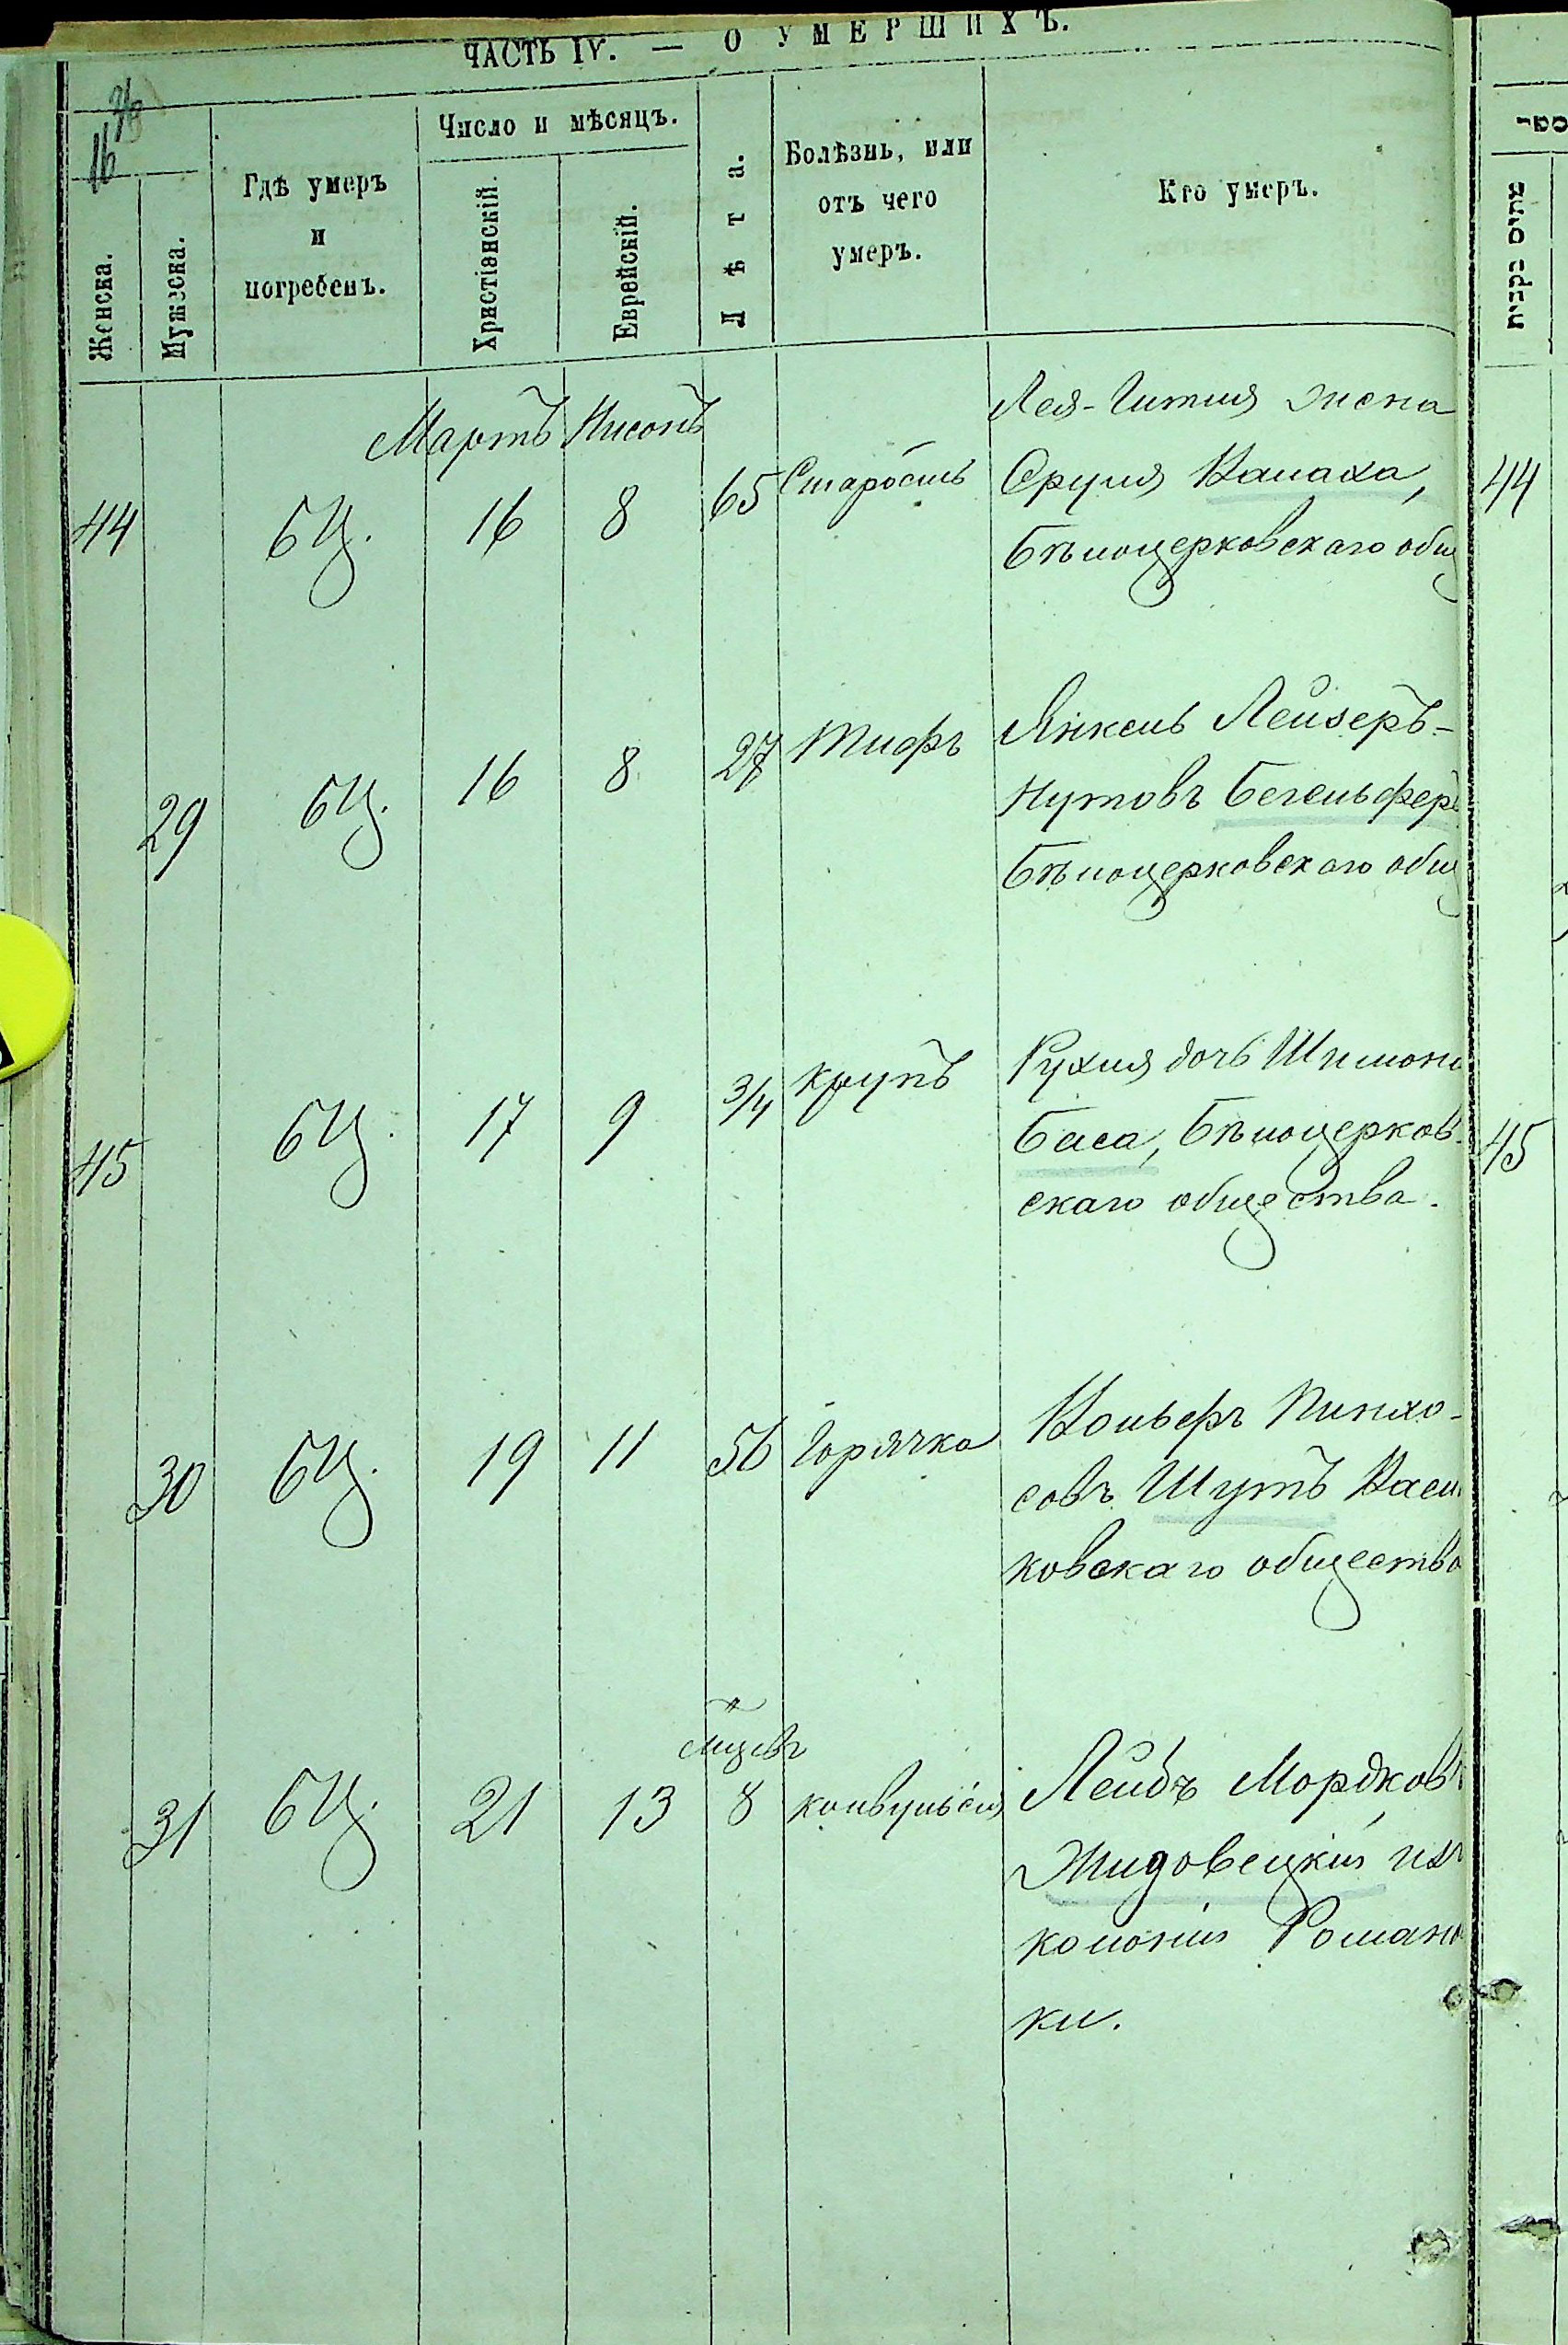 ЧАСТЬ IV. — О УМЕРШИХЪ.
16
Женска.
Мужеска.
Гдѣ умеръ
и
погребенъ.
Число и мѣсяцъ.
Христіанскій.
Еврейскій.
Лѣта.
Болѣзнь, или
отъ чего
умеръ.
Кто умеръ.
Мартъ Нисонъ
44 БЦ. 16 8 65 Старость
Лея-Гитля жена
Сруля
Бѣлоцерковскаго общ
44
29 БЦ. 16 8 27 Тифъ
Янкель Лейзеръ-
Нутовъ Бегельфер
Бѣлоцерковскаго общ
45 БЦ. 17 9 3/4 крупъ
Рухля дочь Шлиомы
Баса, Бѣлоцерков-
скаго общества.
45
30 БЦ. 19 11 56 Горячка
Вольфъ Пинхо-
совъ Шутъ Васи
ковскаго общества
мцвъ
31 БЦ. 21 13 8 конвульсія
Лейбъ Мордков
Жидовецкій изъ
колоніи Романов
ки.